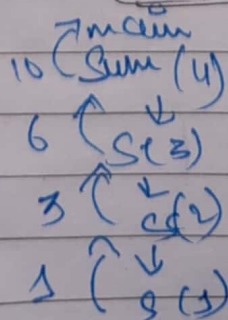 main
10 Sum (4)
6 S(3)
3 S(2)
1 S(1)